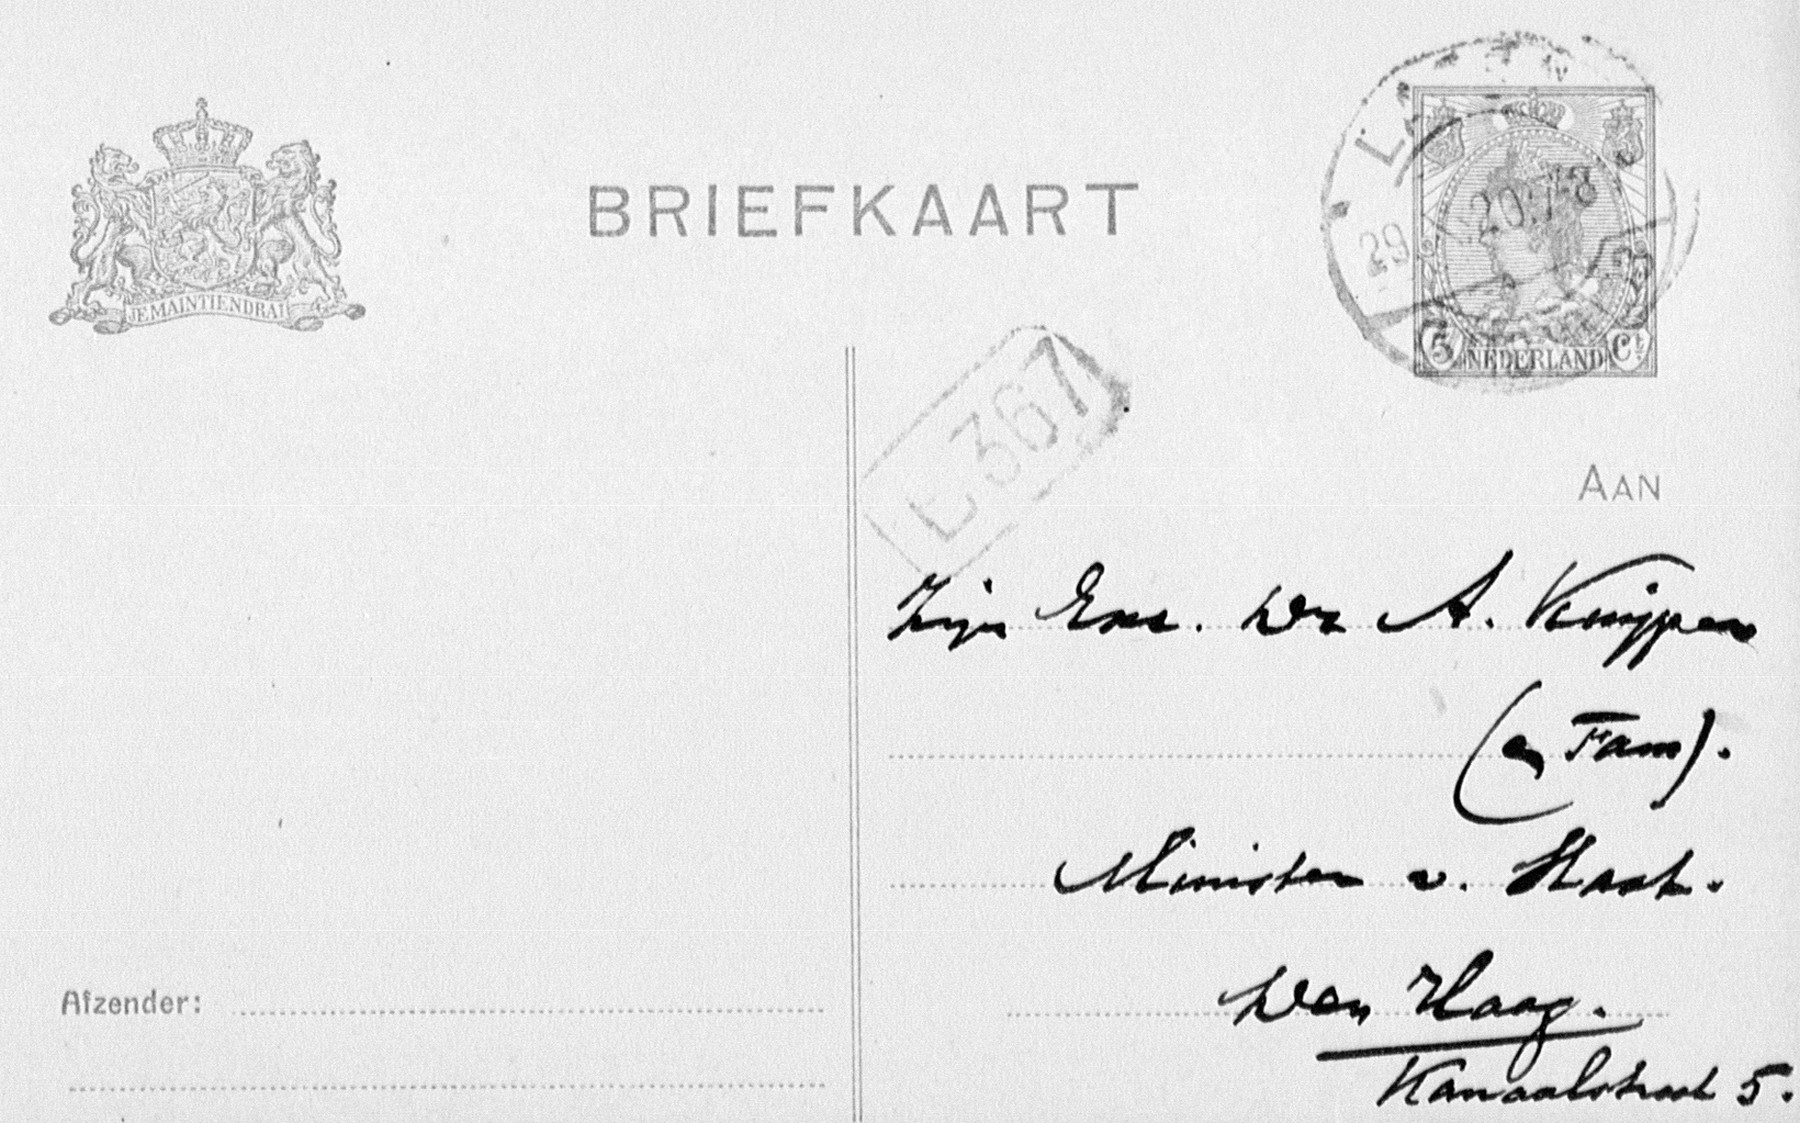 JE MAINTIENDRAI
BRIEFKAART
29 20.7-8
5 NEDERLAND Ct
367
AAN
Zijn Exc. Dr A. Kuijper
(en Fam).
Minister v. Staat.
Den Haag.
Kanaalstraat 5.
Afzender: